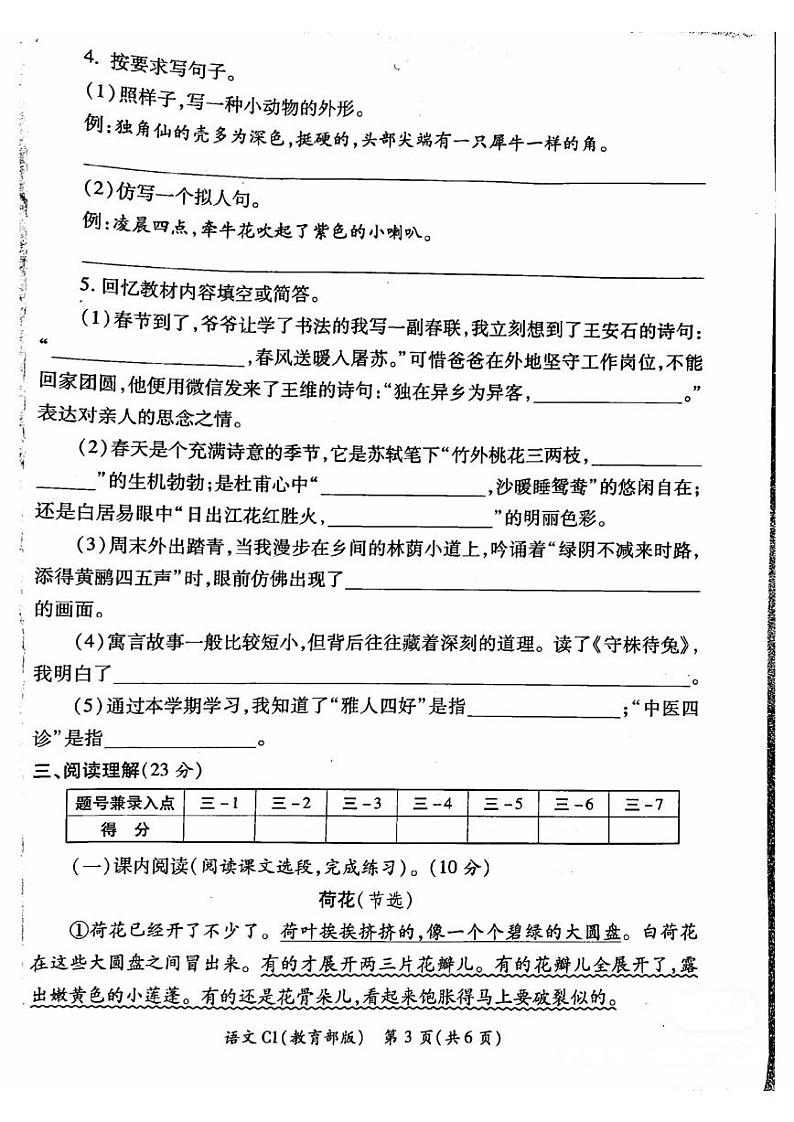 4. 按要求写句子。
(1)照样子,写一种小动物的外形。
例:独角仙的壳多为深色,挺硬的,头部尖端有一只犀牛一样的角。
(2)仿写一个拟人句。
例:凌晨四点,牵牛花吹起了紫色的小喇叭。
5. 回忆教材内容填空或简答。
(1)春节到了,爷爷让学了书法的我写一副春联,我立刻想到了王安石的诗句:
“____________,春风送暖入屠苏。”可惜爸爸在外地坚守工作岗位,不能
回家团圆,他便用微信发来了王维的诗句:“独在异乡为异客,____________。”
表达对亲人的思念之情。
(2)春天是个充满诗意的季节,它是苏轼笔下“竹外桃花三两枝,________
____”的生机勃勃;是杜甫心中“____________,沙暖睡鸳鸯”的悠闲自在;
还是白居易眼中“日出江花红胜火,____________”的明丽色彩。
(3)周末外出踏青,当我漫步在乡间的林荫小道上,吟诵着“绿阴不减来时路,
添得黄鹂四五声”时,眼前仿佛出现了________________________
的画面。
(4)寓言故事一般比较短小,但背后往往藏着深刻的道理。读了《守株待兔》,
我明白了________________________________________。
(5)通过本学期学习,我知道了“雅人四好”是指____________;“中医四
诊”是指____________。
三、阅读理解(23 分)
题号兼录入点 三-1 三-2 三-3 三-4 三-5 三-6 三-7
得 分
(一)课内阅读(阅读课文选段,完成练习)。(10 分)
荷花(节选)
①荷花已经开了不少了。荷叶挨挨挤挤的,像一个个碧绿的大圆盘。白荷花
在这些大圆盘之间冒出来。有的才展开两三片花瓣儿。有的花瓣儿全展开了,露
出嫩黄色的小莲蓬。有的还是花骨朵儿,看起来饱胀得马上要破裂似的。
语文 C1(教育部版) 第 3 页(共 6 页)